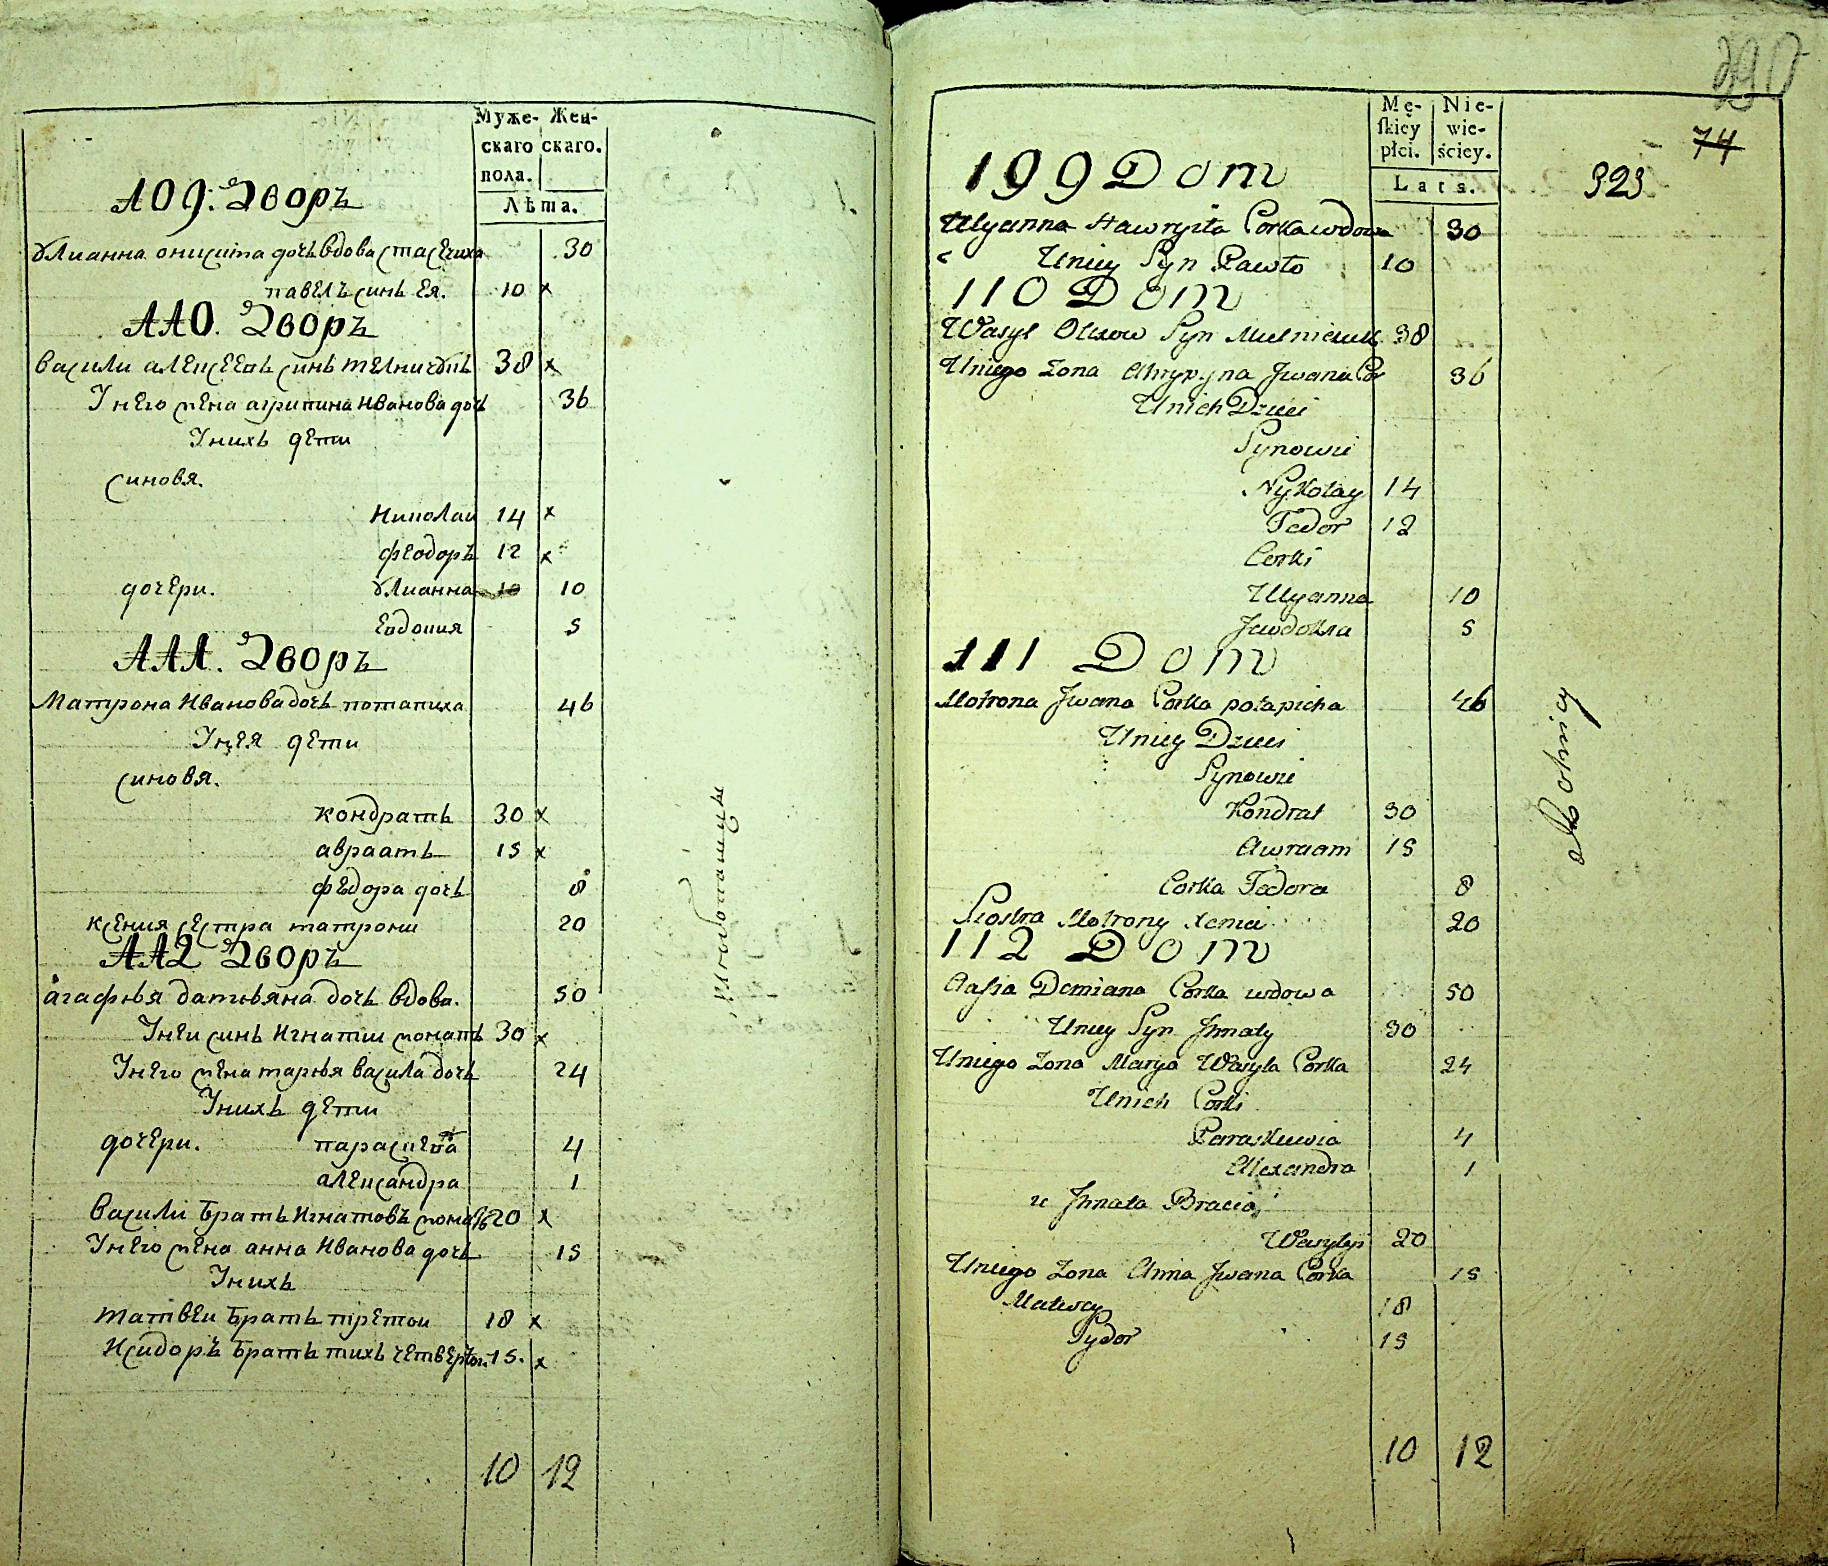 Муже- Жен-
скаго скаго.
пола.
Лѣта.
109. Дворъ
Улианна онисима дочь вдова стасчиха 30
павелъ синь ея. 10 x
110. Дворъ
Васили алексеевъ синь 38 x
У него жена агрипина Иванова дочь 36
У нихъ дети
синовя.
Николаи 14 x
феодоръ 12 x
дочери. Улианна 10 10
Евдокия 5
111. Дворъ
Матрона Иванова дочь потапиха 46
У нея дети
синовя.
кондрать 30 x
авраамь 15 x
федора дочь 8
ксения сестра матрони 20
112 Дворъ
агафья дамьяна дочь вдова. 50
У неи синь Игнатии 30 x
У него жена марья васила дочь 24
У нихъ дети
дочери. параскева 4
александра 1
Васили братъ Игнатовъ 20 x
У него жена анна Иванова дочь 15
У нихъ
матвеи братъ третои 18 x
Исидоръ братъ тихъ четвертои 15. x
10 12
290
74
323
Mę- Nie-
skiey wie-
płci. ściey.
Lats.
199 Dom
Ulyanna Corka wdowa 30
Uniey Syn Pawło 10
110 Dom
Wasyl Olexow Syn Melniczuk 38
Uniego Zona Ahrypyna Jwana Cor 36
Unich Dzieci
Synowie
Nykołay 14
Fedor 12
Corki
Ulyanna 10
Jewdokia 5
111 Dom
Motrona Jwana Corka potapicha 46
Uniey Dzieci
Synowie
Kondrat 30
Awraam 15
Corka Fedora 8
Siostra Motrony Xenia 20
112 Dom
Demiana Corka wdowa 50
Uniey Syn Jhnaty 30
Uniego Zona Marya Wasyla Corka 24
Unich Corki
Paraskewia 4
Alexandra 1
u Jhnata Bracia
Wasyley 20
Uniego Zona Anna Jwana Corka 15
Matwey 18
Sydor 15
10 12